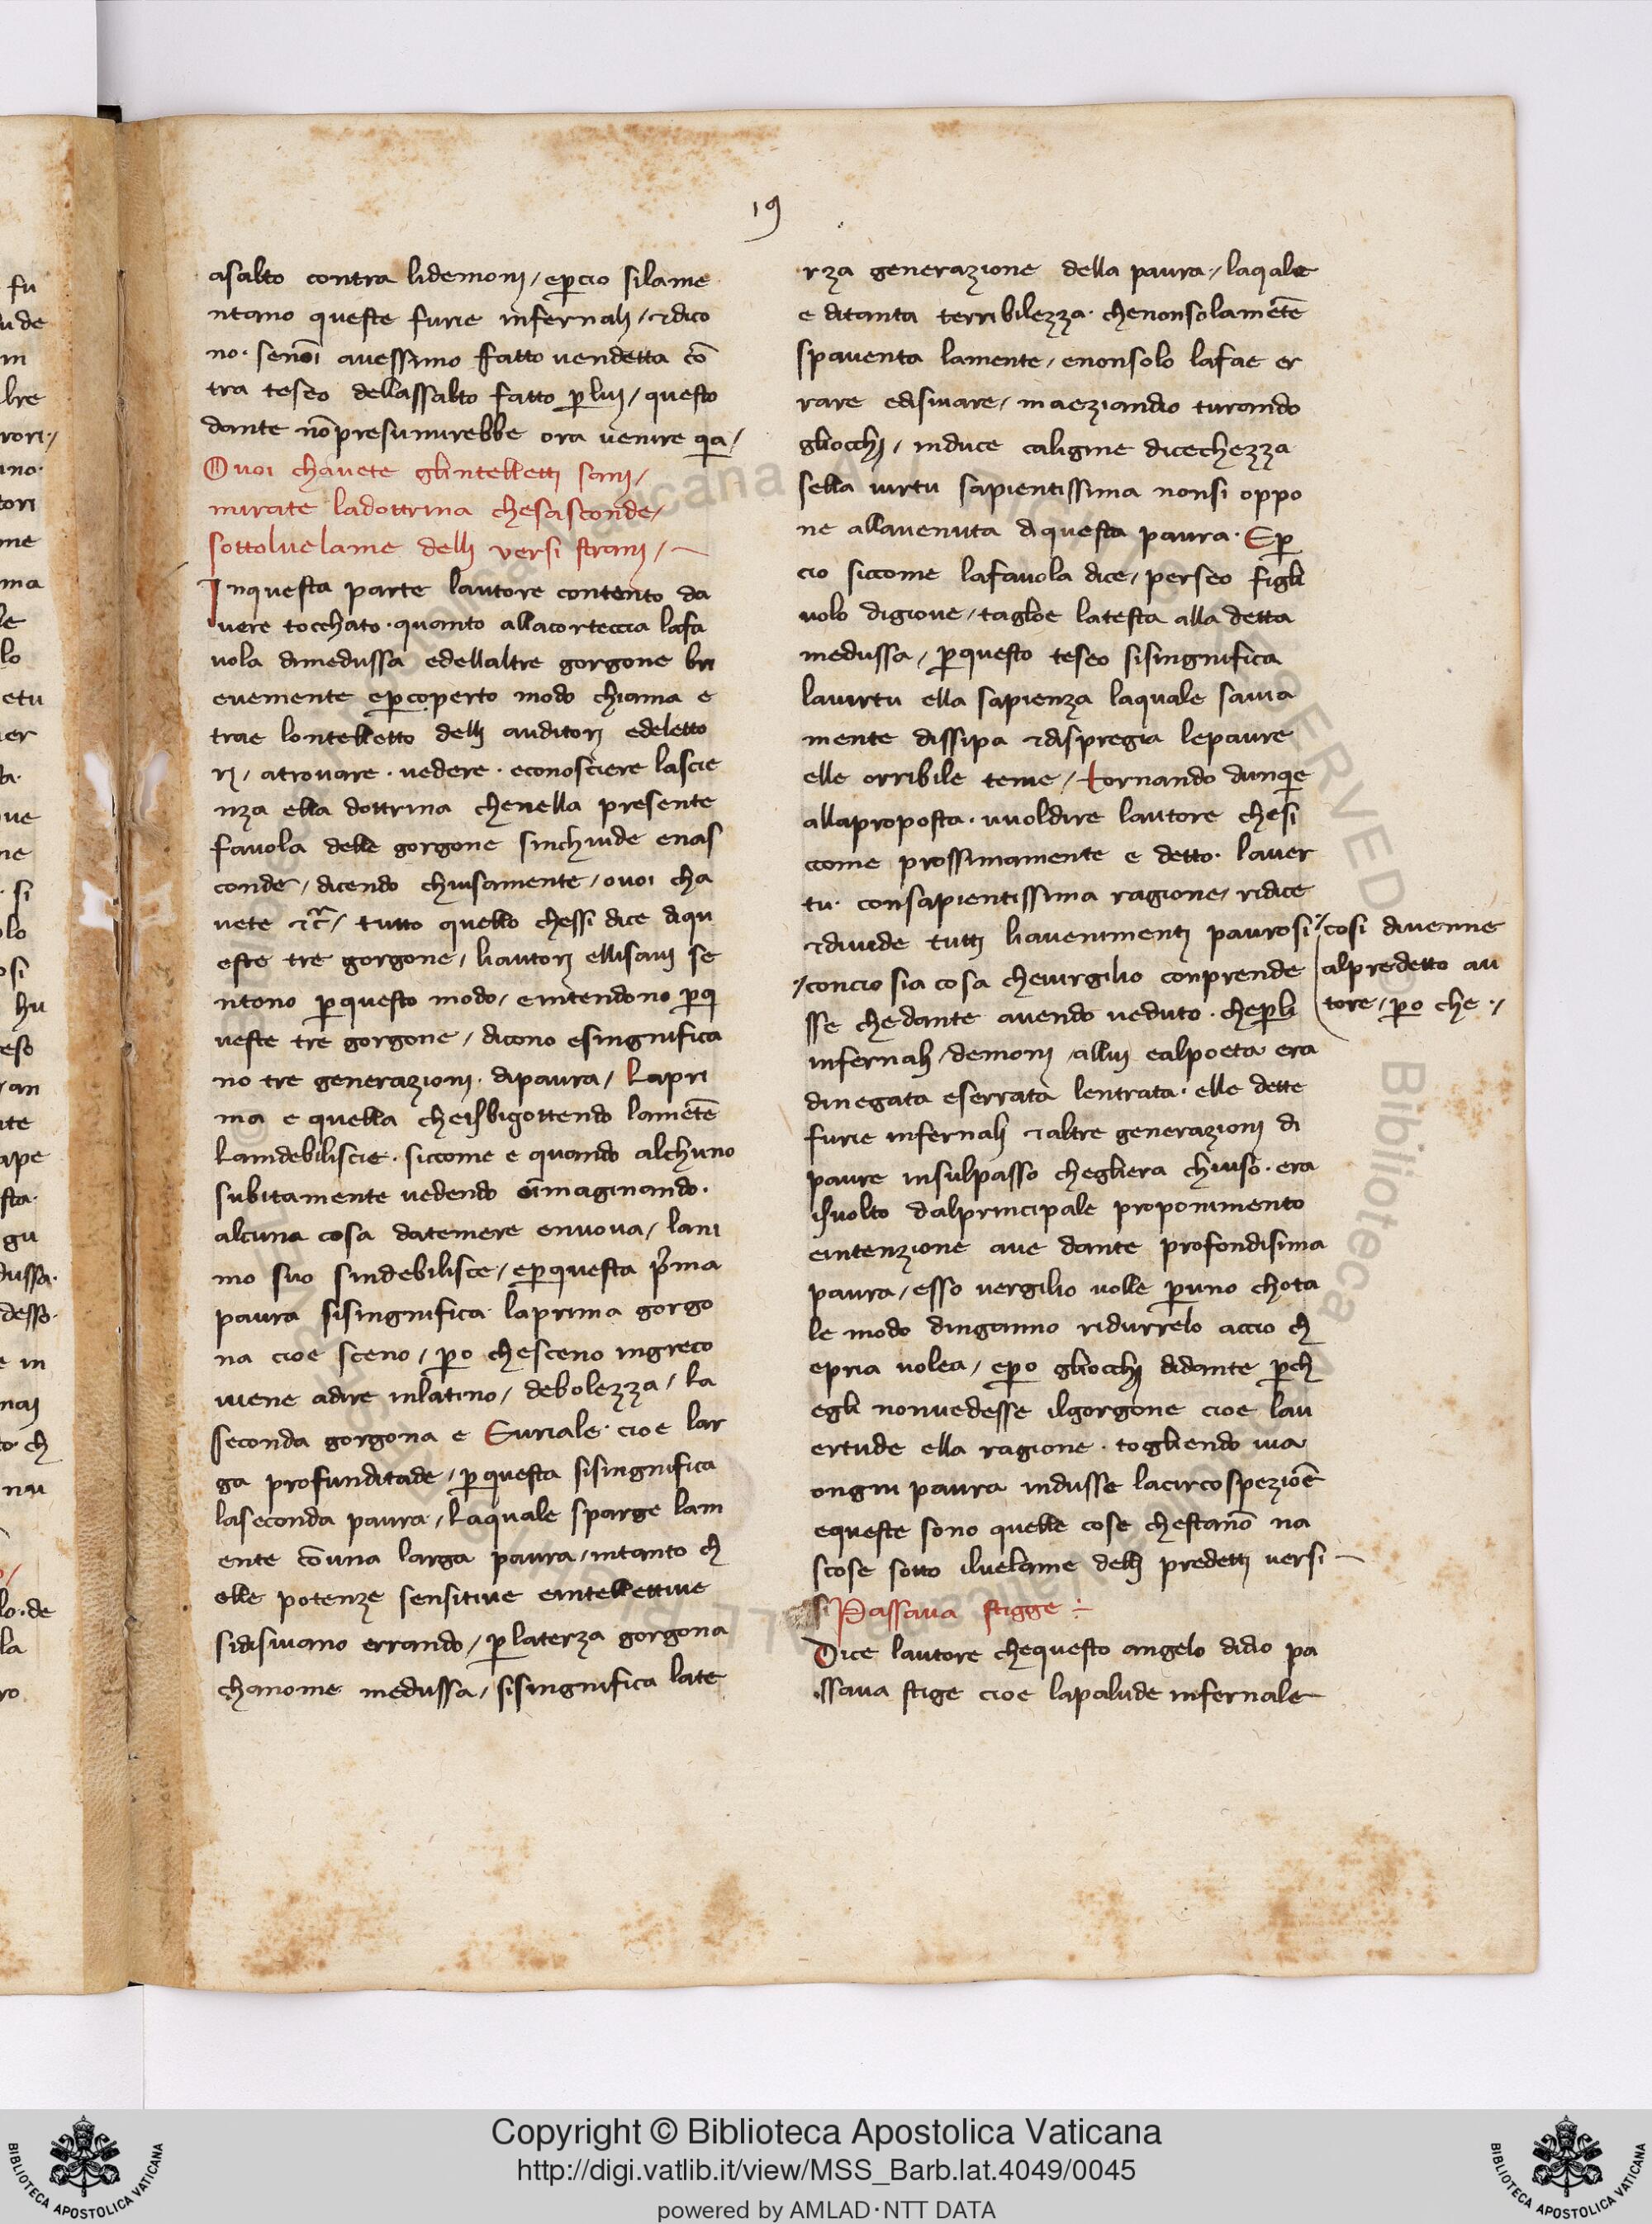 19
asalto contra lidemonj / eꝑcio silame
ntano queste furie infernalj / ⁊dico
no · senōi avessimo ffatto vendetta cō
tra teseo dellassalto fatto ꝑ luj / questo
dante nō presumirebbe ora venire qa /
Ovoi chavete glintelletti sanj /
mirate ladottrina chesasconde /
sottolvelame dellj versi stranj /
Inquesta parte lautore contento da
vere tocchato · quanto allacorteccia lafa
vola dimedussa edellaltre gorgone bri
evemente eꝑcoperto modo chiama e
trae lontelletto dellj auditorj edeletto
rj / atrovare · vedere · econosciere lascie
nza ella dottrina chenella presente
favola delle gorgone sinchiude enas
conde / dicendo chiusamente / ovoi cha
vete ⁊c̄ / tutto quello chessi dice diqu
este tre gorgone / liautorj ellisavj se
ntono ꝑquesto modo / emtendono ꝑq
ueste tre gorgone / dicono esingnifica
no tre generazionj · dipaura / Lapri
ma e quella cheisbigottendo lamētē
Laindebiliscie · siccome e quando alchuno
subitamente vedendo oīmaginando ·
alcuna cosa datemere ennova / lani
mo suo sindebilisce / eꝑquesta pͥma
paura sisingnifica laprima gorgo
na cioe sceno / ꝑo chesceno ingreco
viene adire inlatino / debolezza / La
seconda gorgona e Euriale · cioe lar
ga profunditade / ꝑquesta sisingnifica
laseconda paura / Laquale sparge lam
ente cōuna larga paura / intanto cħ
elle potenze sensitive eintellettive
sidisuiano errando / ꝑ laterza gorgona
chanome medussa / sisingnifica late
rza generazione della paura / laqale
e ditanta terribilezza · chenonsolamētē
spaventa lamente / enonsolo lafae er
rare edisuiare / maeziandio turando
gliocchj / induce caligine dicechezza
sella virtu sapientissima nonsi oppo
ne allavenuta diquesta paura · Eꝑ
cio siccome lafavola dice / perseo figli
uolo digiove / taglioe latesta alla detta
medussa / ꝑquesto teseo sisingnifica
lavirtu ella sapienza laquale savia
mente dissipa ⁊dispregia lepaure
elle orribile teme / tornando dunqe
allaproposta · vuoldire lautore chesi
ccome prossimamente e detto · laver
tu · consapientissima ragione / ridice
⁊divide tuttj liavenimentj paurosi /
/ concio sia cosa chevirgilio conprende
sse chedante avendo veduto · cheꝑli
infernalj / demonj / alluj ealpoeta era
dinegata eserrata lentrata · elle dette
furie infernalj ⁊altre generazionj di
paure insulpasso chegliera chiuso · era
isvolto dalprincipale proponimento
eintenzione ave dante profondisima
paura / esso vergilio volle ꝑuno chota
le modo dinganno ridurrelo accio cħ
epria volea / eꝑo gliocchj didante ꝑcħ
egli nonvedesse ilgorgone cioe lau
ertude ella ragione · togliendo via
ongni paura indusse lacircospeziōē
equeste sono quelle cose chestanō na
scose sotto ilvelame dellj predettj versi
si Passava stigge
Dice lautore chequesto angelo didio pa
ssava stige cioe lapalude infernale
/ cosi divenne
alpredetto au
tore / ꝑo che /
Copyright © Biblioteca Apostolica Vaticana
http://digi.vatlib.it/view/MSS_Barb.lat.4049/0045
powered by AMLAD·NTT DATA
BIBLIOTECA APOSTOLICA VATICANA
BIBLIOTECA APOSTOLICA VATICANA